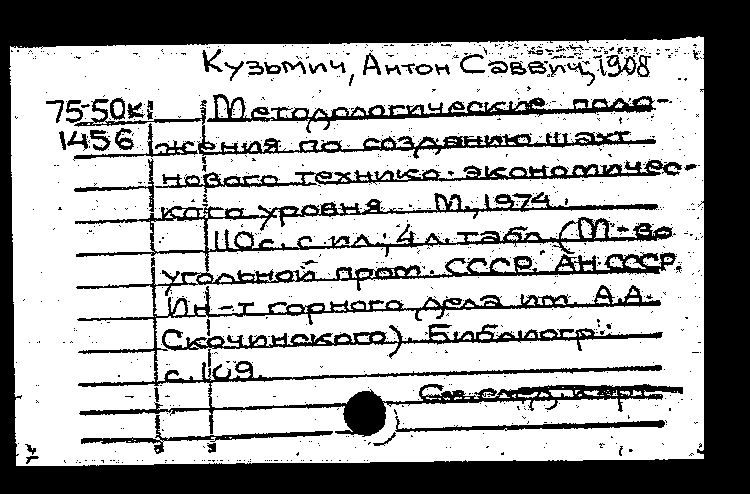 Кузьмич, Антон Саввич, 1908
75-50к Методологические поло-
1456 жения по созданию шахт
нового технико-экономичес-
кого уровня. М., 1974.
110с. с ил.; 4 л. табл. (М-во
угольной пром. СССР. АН СССР.
Ин-т горного дела им. А.А.
Скочинского). Библиогр.:
с.109.
См. след. карт.